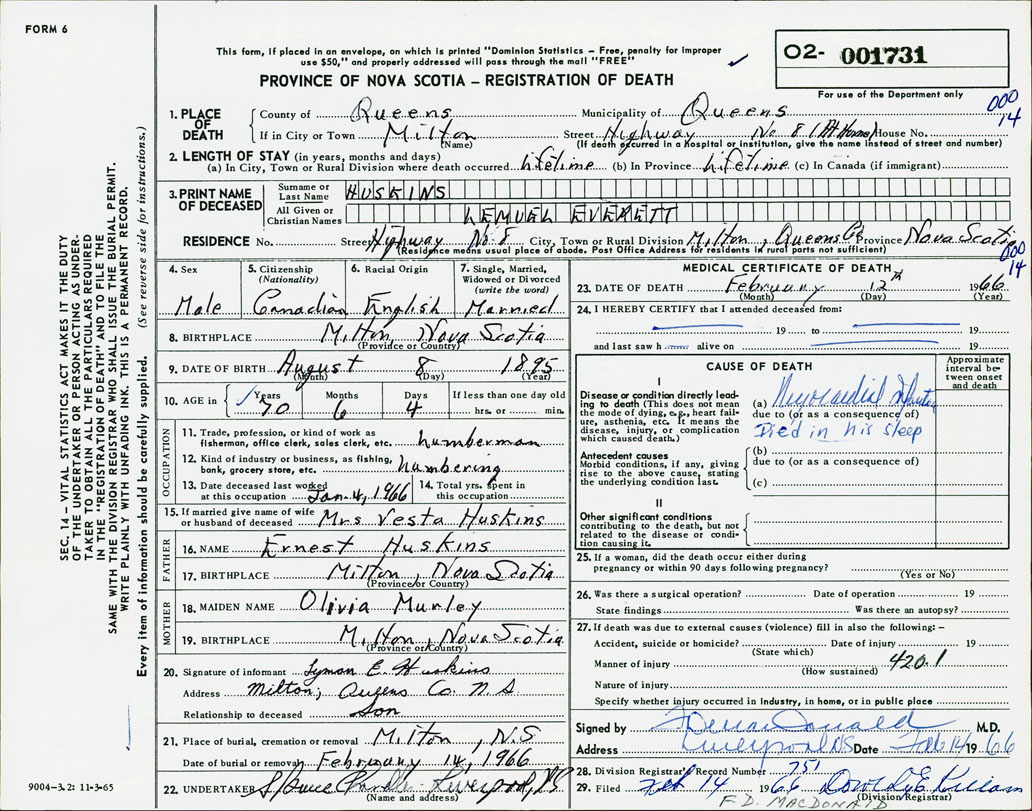 FORM 6
This form, if placed in an envelope, on which is printed "Dominion Statistics – Free, penalty for improper
use $50," and properly addressed will pass through the mail "FREE"
PROVINCE OF NOVA SCOTIA – REGISTRATION OF DEATH
O2- 001731
For use of the Department only
000
14
1. PLACE OF DEATH
County of Queens Municipality of Queens
If in City or Town Milton Street Highway No 8 (At Home) House No.
(Name) (If death occurred in a Hospital or institution, give the name instead of street and number)
2. LENGTH OF STAY (in years, months and days)
(a) In City, Town or Rural Division where death occurred lifetime (b) In Province lifetime (c) In Canada (if immigrant)
3. PRINT NAME OF DECEASED
Surname or Last Name HUSKINS
All Given or Christian Names LEMUEL EVERETT
RESIDENCE No. Street Highway No 8 City, Town or Rural Division Milton, Queens Co Province Nova Scotia
(Residence means usual place of abode. Post Office Address for residents in rural parts not sufficient)
000
14
4. Sex Male
5. Citizenship (Nationality) Canadian
6. Racial Origin English
7. Single, Married, Widowed or Divorced (write the word) Married
8. BIRTHPLACE Milton, Nova Scotia
(Province or Country)
9. DATE OF BIRTH August 8 1895
(Month) (Day) (Year)
10. AGE in Years 70 Months 6 Days 4 If less than one day old hrs. or min.
OCCUPATION
11. Trade, profession, or kind of work as fisherman, office clerk, sales clerk, etc. Lumberman
12. Kind of industry or business, as fishing, bank, grocery store, etc. Lumbering
13. Date deceased last worked at this occupation Jan. 4, 1966
14. Total yrs. spent in this occupation
15. If married give name of wife or husband of deceased Mrs Vesta Huskins
FATHER
16. NAME Ernest Huskins
17. BIRTHPLACE Milton, Nova Scotia
(Province or Country)
MOTHER
18. MAIDEN NAME Olivia Munley
19. BIRTHPLACE Milton, Nova Scotia
(Province or Country)
20. Signature of informant Lyman E. Huskins
Address Milton, Queens Co. N S
Relationship to deceased Son
21. Place of burial, cremation or removal Milton, N.S
Date of burial or removal February 14, 1966
22. UNDERTAKER Liverpool, NS
(Name and address)
MEDICAL CERTIFICATE OF DEATH
23. DATE OF DEATH February 12th 1966
(Month) (Day) (Year)
24. I HEREBY CERTIFY that I attended deceased from:
19 to 19
and last saw h alive on 19
CAUSE OF DEATH
Approximate interval between onset and death
I
Disease or condition directly leading to death (This does not mean the mode of dying, e.g., heart failure, asthenia, etc. It means the disease, injury, or complication which caused death.)
(a) Myocardial Infarction
due to (or as a consequence of)
Died in his sleep
Antecedent causes
Morbid conditions, if any, giving rise to the above cause, stating the underlying condition last.
(b)
due to (or as a consequence of)
(c)
II
Other significant conditions contributing to the death, but not related to the disease or condition causing it.
25. If a woman, did the death occur either during pregnancy or within 90 days following pregnancy?
(Yes or No)
26. Was there a surgical operation? Date of operation 19
State findings Was there an autopsy?
27. If death was due to external causes (violence) fill in also the following:–
Accident, suicide or homicide? Date of injury 19
(State which)
Manner of injury 420.1
(How sustained)
Nature of injury
Specify whether injury occurred in industry, in home, or in public place
Signed by M.D.
Address Liverpool NS Date Feb 14/1966
28. Division Registrar's Record Number 757
29. Filed Feb 14 1966
(Division Registrar)
F.D. MACDONALD
SEC. 14 – VITAL STATISTICS ACT MAKES IT THE DUTY
OF THE UNDERTAKER OR PERSON ACTING AS UNDER-
TAKER TO OBTAIN ALL THE PARTICULARS REQUIRED
IN THE "REGISTRATION OF DEATH" AND TO FILE THE
SAME WITH THE DIVISION REGISTRAR WHO SHALL ISSUE THE BURIAL PERMIT.
WRITE PLAINLY WITH UNFADING INK. THIS IS A PERMANENT RECORD.
Every item of information should be carefully supplied. (See reverse side for instructions.)
9004-3.2: 11-3-65